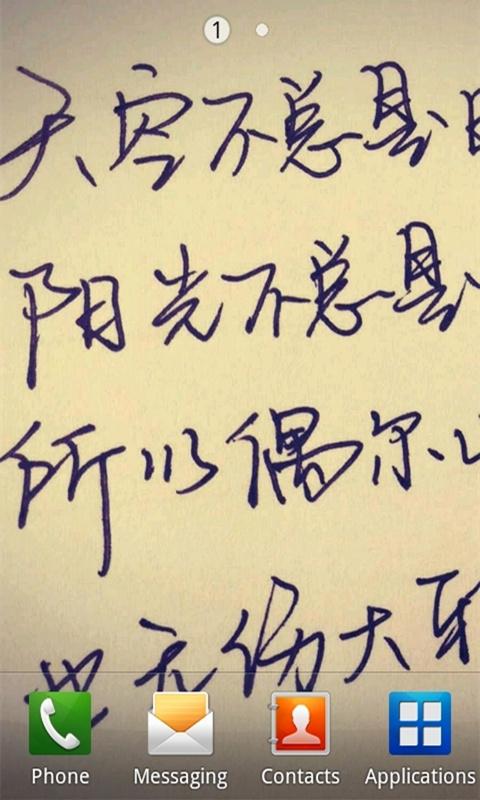 1
天空不总是
阳光不总是
所以偶尔
也无伤大
Phone Messaging Contacts Applications